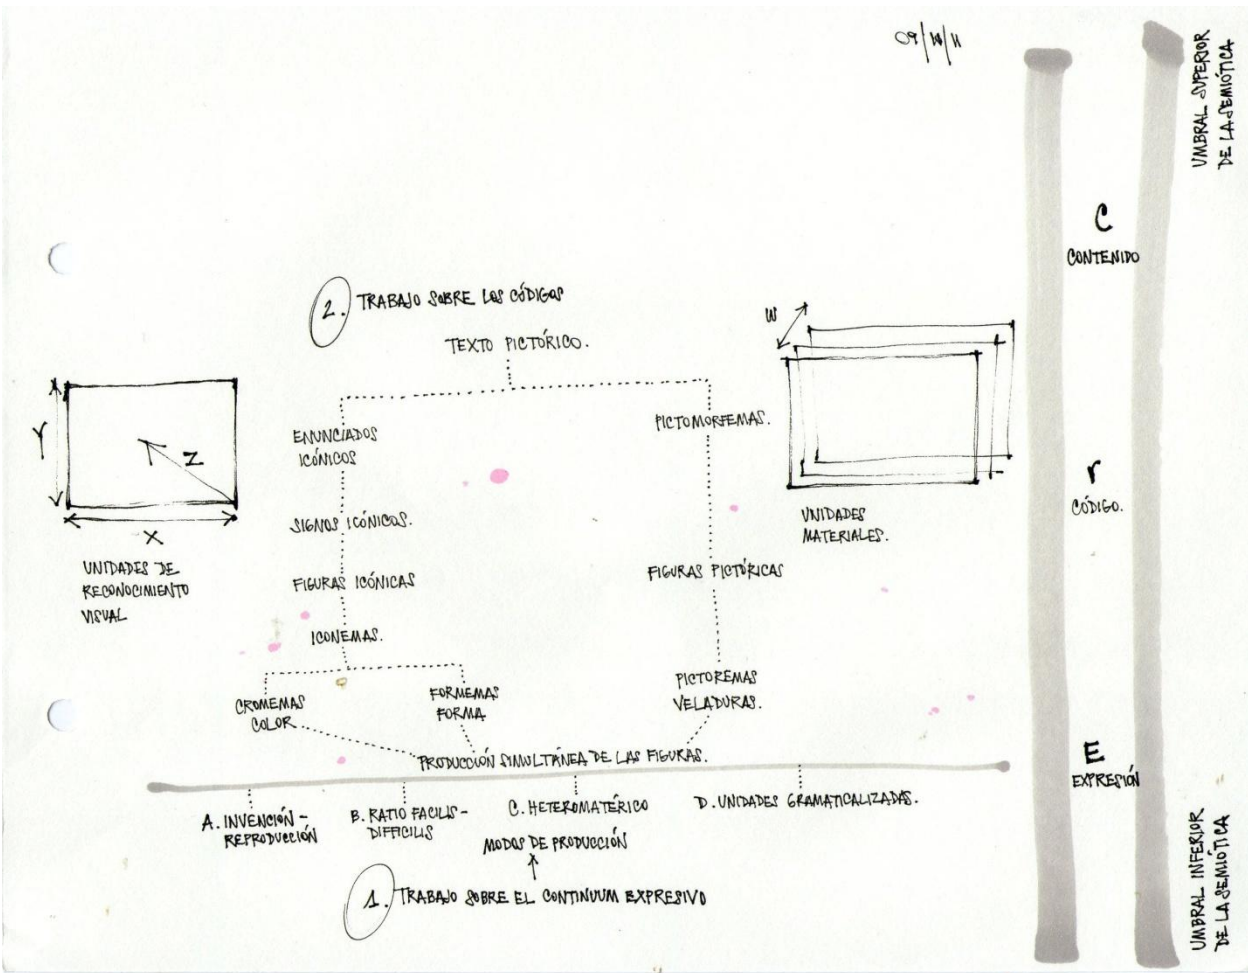 09/10/11
UMBRAL SUPERIOR
DE LA SEMIÓTICA
C
CONTENIDO
2. TRABAJO SOBRE LOS CÓDIGOS
TEXTO PICTÓRICO.
W
Y
Z
X
UNIDADES DE
RECONOCIMIENTO
VISUAL
ENUNCIADOS
ICÓNICOS
SIGNOS ICÓNICOS.
FIGURAS ICÓNICAS
ICONEMAS.
CROMEMAS
COLOR
FORMEMAS
FORMA
PICTOMORFEMAS.
FIGURAS PICTÓRICAS
PICTOREMAS
VELADURAS.
UNIDADES
MATERIALES.
r
CÓDIGO.
PRODUCCIÓN SIMULTÁNEA DE LAS FIGURAS.
E
EXPRESIÓN
A. INVENCIÓN -
REPRODUCCIÓN
B. RATIO FACILIS -
DIFFICILIS
C. HETEROMATÉRICO
D. UNIDADES GRAMATICALIZADAS.
MODOS DE PRODUCCIÓN
1. TRABAJO SOBRE EL CONTINUUM EXPRESIVO
UMBRAL INFERIOR
DE LA SEMIÓTICA